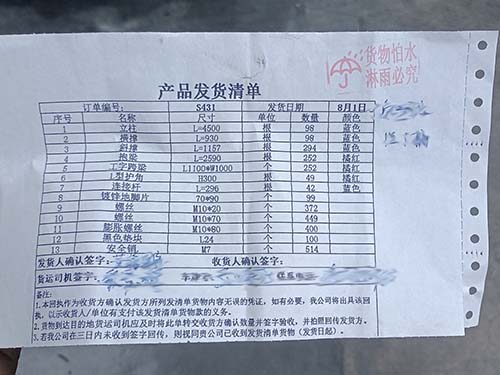 货物怕水
淋雨必究
产品发货清单
订单编号: S431 发货日期 8月1日
序号 名称 尺寸 单位 数量 颜色
1 立柱 L=4500 根 98 蓝色
2 横撑 L=930 根 98 蓝色
3 斜撑 L=1157 根 294 蓝色
4 抱梁 L=2590 根 252 橘红
5 工字跨梁 L1100*W1000 个 252 橘红
6 L型护角 H300 根 49 橘红
7 连接杆 L=296 根 42 蓝色
8 镀锌地脚片 70*90 个 99
9 螺丝 M10*20 个 372
10 螺丝 M10*70 个 449
11 膨胀螺丝 M10*80 个 400
12 黑色垫块 L24 个 100
13 安全销 M7 个 514
发货人确认签字: 收货人确认签字:
货运司机签字:
备注:
1.本回执作为收货方确认发货方所列发清单货物内容无误的凭证,如有必要,我公司将出具该回
执,以示收货人/单位有支付该发货清单货物款的义务。
2.货物到达目的地货运司机应及时将此单转交收货方确认数量并签字验收,并拍照回传发货方。
3.若我公司在三日内未收到签字回传,则视同贵公司已收到发货清单货物(发货日起)。